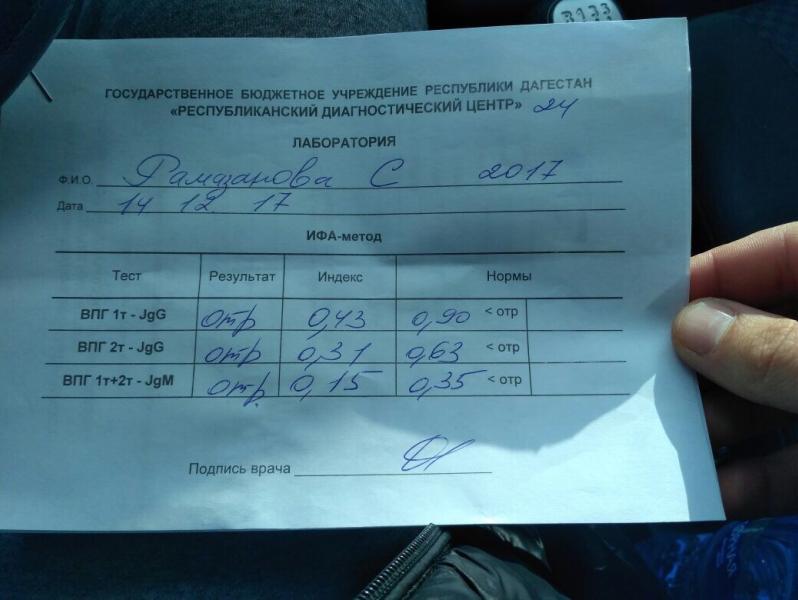 ГОСУДАРСТВЕННОЕ БЮДЖЕТНОЕ УЧРЕЖДЕНИЕ РЕСПУБЛИКИ ДАГЕСТАН
«РЕСПУБЛИКАНСКИЙ ДИАГНОСТИЧЕСКИЙ ЦЕНТР» 24
ЛАБОРАТОРИЯ
Ф.И.О. Рамазанова С 2017
Дата 14 12. 17
ИФА-метод
Тест Результат Индекс Нормы
ВПГ 1т - JgG отр 0,43 0,90 < отр
ВПГ 2т - JgG отр 0,31 0,63 < отр
ВПГ 1т+2т - JgM отр. 0,15 0,35 < отр
Подпись врача